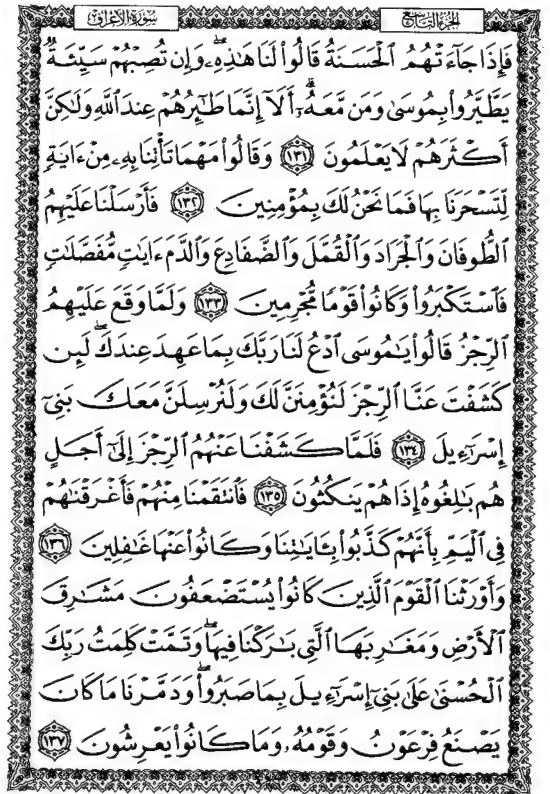 الجزء التاسع
سورة الأعراف
فَإِذَا جَآءَتْهُمُ ٱلْحَسَنَةُ قَالُوا۟ لَنَا هَٰذِهِۦ ۖ وَإِن تُصِبْهُمْ سَيِّئَةٌ
يَطَّيَّرُوا۟ بِمُوسَىٰ وَمَن مَّعَهُۥٓ ۗ أَلَآ إِنَّمَا طَٰٓئِرُهُمْ عِندَ ٱللَّهِ وَلَٰكِنَّ
أَكْثَرَهُمْ لَا يَعْلَمُونَ ١٣١ وَقَالُوا۟ مَهْمَا تَأْتِنَا بِهِۦ مِنْ ءَايَةٍ
لِّتَسْحَرَنَا بِهَا فَمَا نَحْنُ لَكَ بِمُؤْمِنِينَ ١٣٢ فَأَرْسَلْنَا عَلَيْهِمُ
ٱلطُّوفَانَ وَٱلْجَرَادَ وَٱلْقُمَّلَ وَٱلضَّفَادِعَ وَٱلدَّمَ ءَايَٰتٍ مُّفَصَّلَٰتٍ
فَٱسْتَكْبَرُوا۟ وَكَانُوا۟ قَوْمًا مُّجْرِمِينَ ١٣٣ وَلَمَّا وَقَعَ عَلَيْهِمُ
ٱلرِّجْزُ قَالُوا۟ يَٰمُوسَى ٱدْعُ لَنَا رَبَّكَ بِمَا عَهِدَ عِندَكَ ۖ لَئِن
كَشَفْتَ عَنَّا ٱلرِّجْزَ لَنُؤْمِنَنَّ لَكَ وَلَنُرْسِلَنَّ مَعَكَ بَنِىٓ
إِسْرَٰٓءِيلَ ١٣٤ فَلَمَّا كَشَفْنَا عَنْهُمُ ٱلرِّجْزَ إِلَىٰٓ أَجَلٍ
هُم بَٰلِغُوهُ إِذَا هُمْ يَنكُثُونَ ١٣٥ فَٱنتَقَمْنَا مِنْهُمْ فَأَغْرَقْنَٰهُمْ
فِى ٱلْيَمِّ بِأَنَّهُمْ كَذَّبُوا۟ بِـَٔايَٰتِنَا وَكَانُوا۟ عَنْهَا غَٰفِلِينَ ١٣٦
وَأَوْرَثْنَا ٱلْقَوْمَ ٱلَّذِينَ كَانُوا۟ يُسْتَضْعَفُونَ مَشَٰرِقَ
ٱلْأَرْضِ وَمَغَٰرِبَهَا ٱلَّتِى بَٰرَكْنَا فِيهَا ۖ وَتَمَّتْ كَلِمَتُ رَبِّكَ
ٱلْحُسْنَىٰ عَلَىٰ بَنِىٓ إِسْرَٰٓءِيلَ بِمَا صَبَرُوا۟ ۖ وَدَمَّرْنَا مَا كَانَ
يَصْنَعُ فِرْعَوْنُ وَقَوْمُهُۥ وَمَا كَانُوا۟ يَعْرِشُونَ ١٣٧